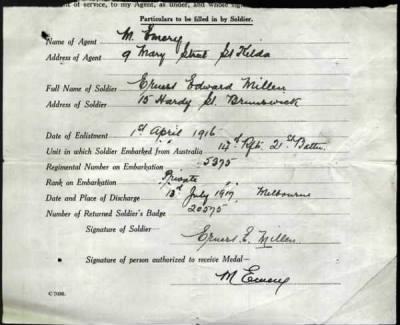 of service, to my Agent, as under, and whose
Particulars to be filled in by Soldier.
Name of Agent M. Emery
Address of Agent 9 Mary Street St Kilda
Full Name of Soldier Ernest Edward Millen
Address of Soldier 15 Hardy St. Brunswick
Date of Enlistment 1st April 1916
Unit in which Soldier Embarked from Australia 14th Rfts. 21st Battn.
Regimental Number on Embarkation 5375
Rank on Embarkation Private
Date and Place of Discharge 13th July 1917 Melbourne
Number of Returned Soldier's Badge 20575
Signature of Soldier—
Ernest E. Millen
Signature of person authorized to receive Medal—
M Emery